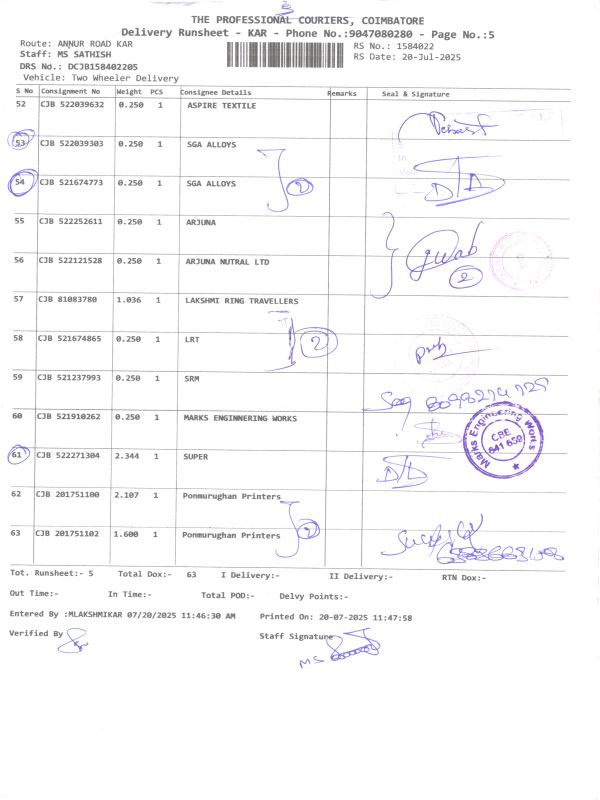 THE PROFESSIONAL COURIERS, COIMBATORE
Delivery Runsheet - KAR - Phone No.:9047080280 - Page No.:5
Route: ANNUR ROAD KAR
RS No.: 1584022
Staff: MS SATHISH
RS Date: 20-Jul-2025
DRS No.: DCJB158402205
Vehicle: Two Wheeler Delivery
S No Consignment No Weight PCS Consignee Details Remarks Seal & Signature
52 CJB 522039632 0.250 1 ASPIRE TEXTILE
53 CJB 522039303 0.250 1 SGA ALLOYS
54 CJB 521674773 0.250 1 SGA ALLOYS 2
D/D
55 CJB 522252611 0.250 1 ARJUNA
56 CJB 522121528 0.250 1 ARJUNA NUTRAL LTD
2
57 CJB 81083780 1.036 1 LAKSHMI RING TRAVELLERS
58 CJB 521674865 0.250 1 LRT 2
59 CJB 521237993 0.250 1 SRM
60 CJB 521910262 0.250 1 MARKS ENGINNERING WORKS
Marks Engineering Works
CBE
641 659
61 CJB 522271304 2.344 1 SUPER
D/D
62 CJB 201751100 2.107 1 Ponmurughan Printers
2
63 CJB 201751102 1.600 1 Ponmurughan Printers
Tot. Runsheet:- 5 Total Dox:- 63 I Delivery:- II Delivery:- RTN Dox:-
Out Time:- In Time:- Total POD:- Delvy Points:-
Entered By :MLAKSHMIKAR 07/20/2025 11:46:30 AM Printed On: 20-07-2025 11:47:58
Verified By Staff Signature
MS